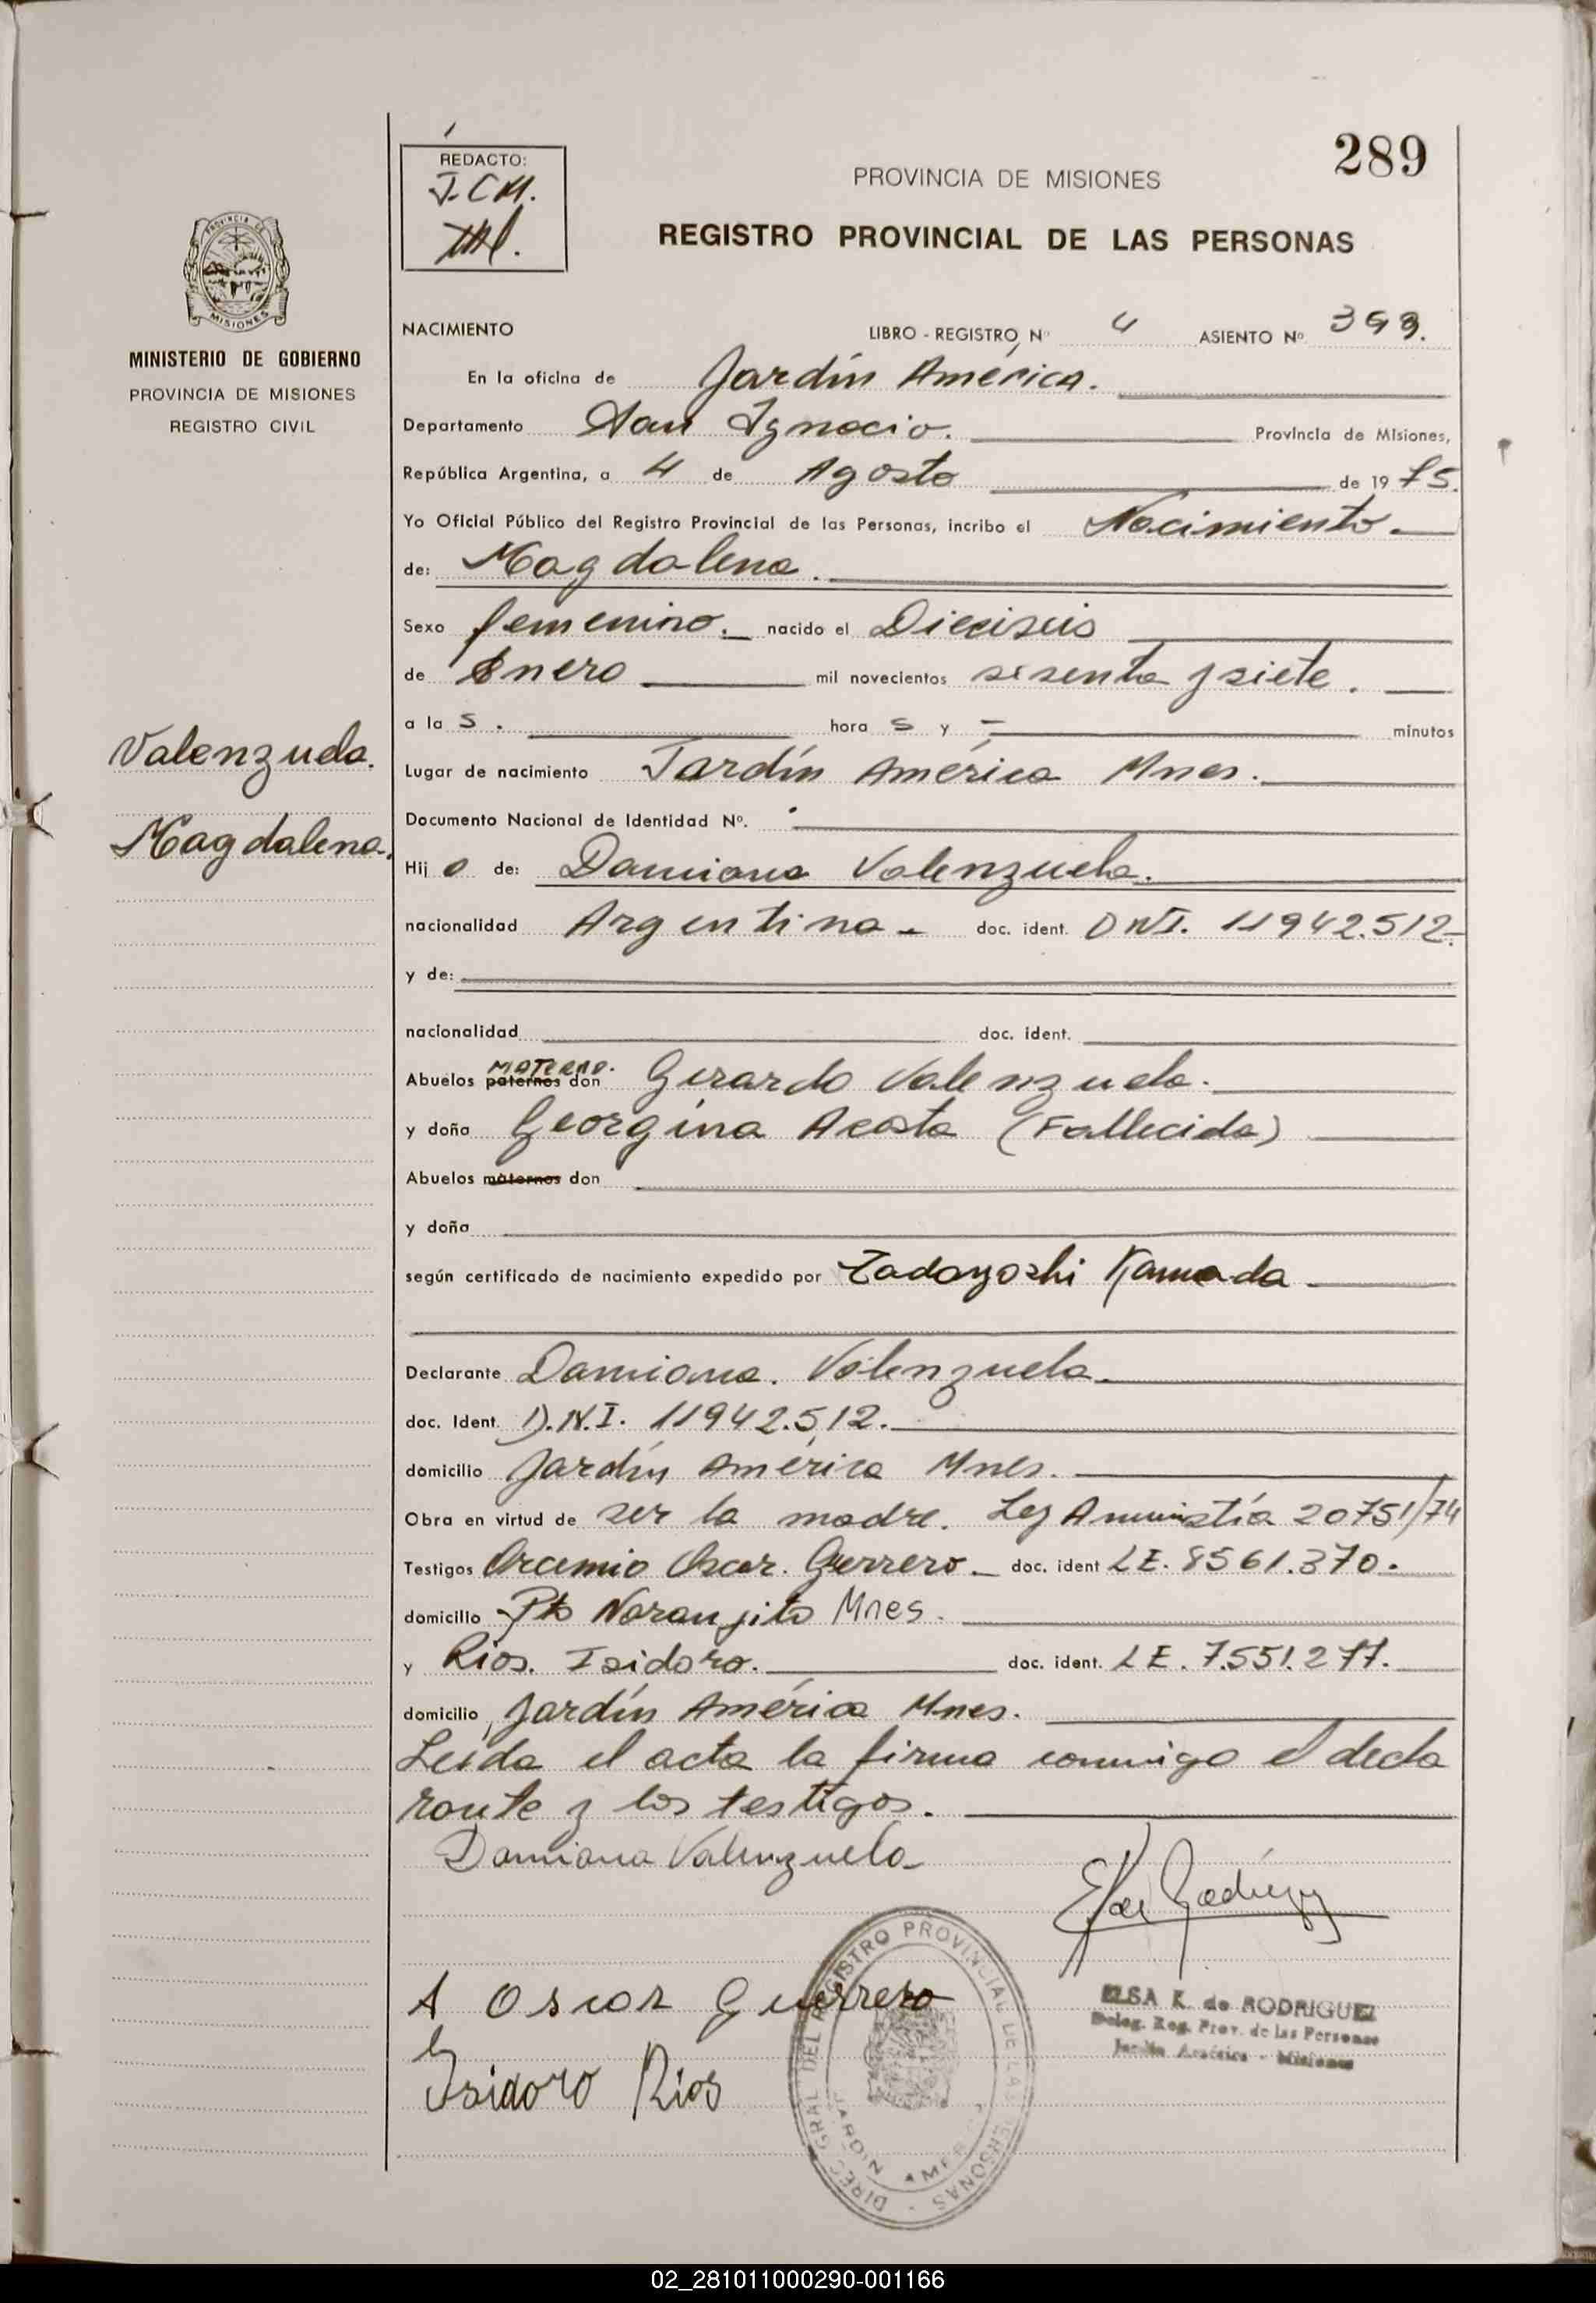 289
REDACTO:
J.C.M.
PROVINCIA DE MISIONES
REGISTRO PROVINCIAL DE LAS PERSONAS
PROVINCIA DE
MISIONES
MINISTERIO DE GOBIERNO
PROVINCIA DE MISIONES
REGISTRO CIVIL
NACIMIENTO LIBRO - REGISTRO Nº 4 ASIENTO Nº 393.
En la oficina de Jardín América.
Departamento San Ignacio. Provincia de Misiones,
República Argentina, a 4 de Agosto de 19 75.
Yo Oficial Público del Registro Provincial de las Personas, incribo el Nacimiento.
de: Magdalena.
Sexo femenino. nacido el Dieciseis
de Enero mil novecientos sesenta y siete.
a la s. hora s y - minutos
Valenzuela.
Lugar de nacimiento Jardín América Mnes.
Documento Nacional de Identidad Nº.
Magdalena.
Hij a de: Damiana Valenzuela.
nacionalidad Argentina - doc. ident. DNI. 11942.512.
y de:
nacionalidad doc. ident.
MATERNO.
Abuelos paternos don Gerardo Valenzuela.
y doña Georgina Acosta (Fallecida)
Abuelos maternos don
y doña
según certificado de nacimiento expedido por Tadayoshi Kamada
Declarante Damiana. Valenzuela
doc. Ident. D.N.I. 11942.512.
domicilio Jardín América Mnes.
Obra en virtud de ser la madre. Ley Amnistía 20751/74
Testigos Arcemio Oscar. Guerrero. doc. ident LE. 8561.370.
domicilio Pto Naranjito Mnes.
y Rios. Isidoro. doc. ident. LE. 7.551.277.
domicilio Jardín América Mnes.
Leída el acta la firma conmigo el decla
rante y los testigos.
Damiana Valenzuela
A Oscar Guerrero
ELSA K. de RODRIGUEZ
Deleg. Reg. Prov. de las Personas
Jardín América - Misiones
Isidoro Rios
DIREC. GRAL DEL REGISTRO PROVINCIAL DE LAS PERSONAS
JARDIN AMERICA
02_281011000290-001166